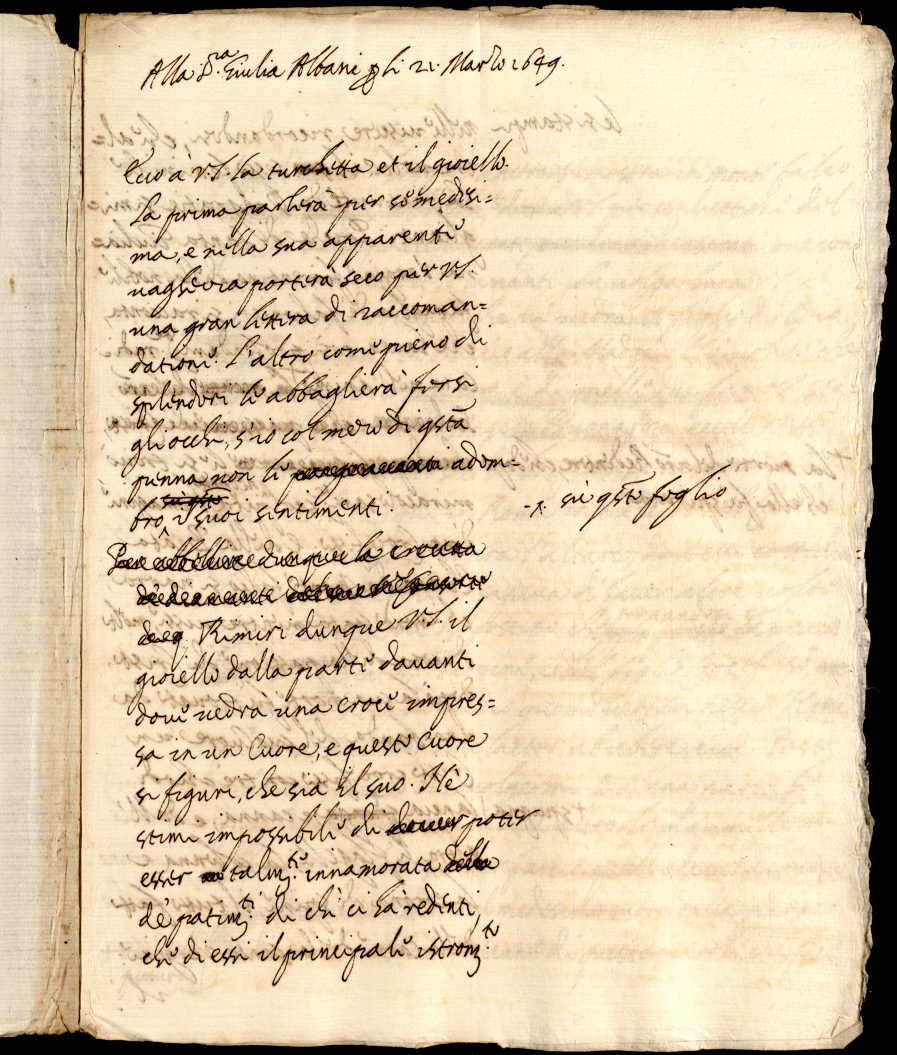 Alla S.ra Giulia Albani p li 21. Marzo 1649.
Ecco à V.S. la turchetta, et il gioiello.
La prima parlerà per se medesi=
ma, e nella sua apparente
vaghezza porterà seco per V.S.
una gran lettera di raccoman=
datione. L'altro come pieno di
splendori le abbaglierà forsi
gli occhi, s'io col mezo di qsta
penna non le adom=
bro i suoi sentimenti.
-x. sù qsto foglio
Per abbellire dunque la crocetta
de diamanti
Rimiri dunque V.S. il
gioiello dalla parte davanti
dove vedrà una croce impres=
sa in un Cuore, e questo Cuore
si figuri, che sia il suo. Nè
stimi impossibile di poter
esser talm.te innamorata della
de' patim.ti di chi ci hà redenti,
che di essi il principale istrom.to